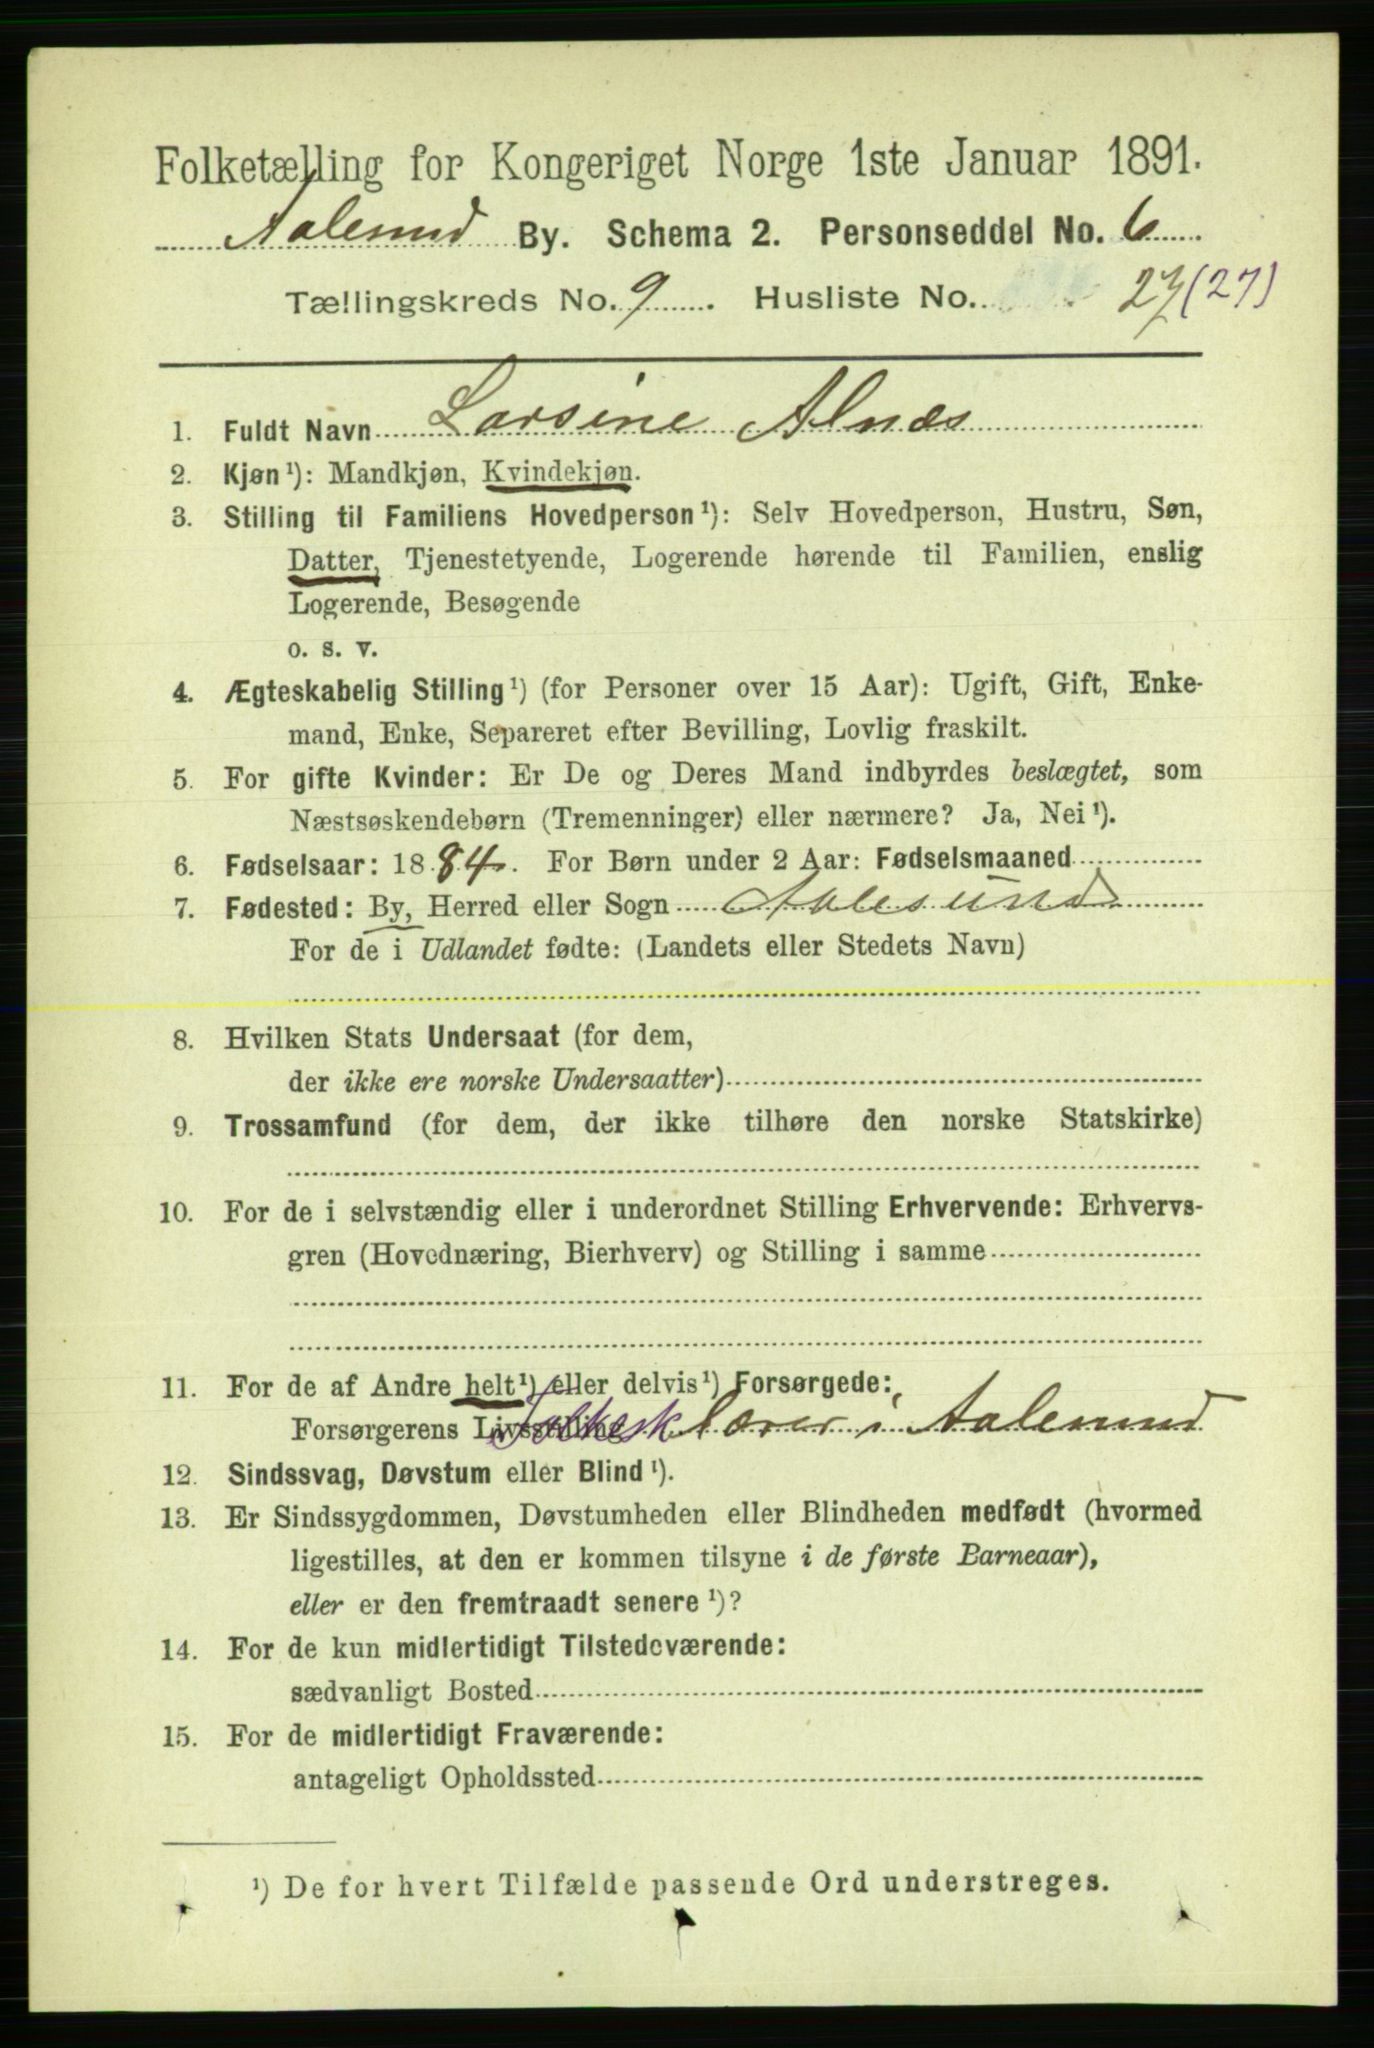 Folketælling for Kongeriget Norge 1ste Januar 1891.
Aalesund By. Schema 2. Personseddel No. 6
Tællingskreds No. 9. Husliste No. 27 (27)
1. Fuldt Navn Larsine Alnæs
2. Kjøn¹): Mandkjøn, Kvindekjøn.
3. Stilling til Familiens Hovedperson¹): Selv Hovedperson, Hustru, Søn,
Datter, Tjenestetyende, Logerende hørende til Familien, enslig
Logerende, Besøgende
o. s. v.
4. Ægteskabelig Stilling¹) (for Personer over 15 Aar): Ugift, Gift, Enke-
mand, Enke, Separeret efter Bevilling, Lovlig fraskilt.
5. For gifte Kvinder: Er De og Deres Mand indbyrdes beslægtet, som
Næstsøskendebørn (Tremenninger) eller nærmere? Ja, Nei¹).
6. Fødselsaar: 1884. For Børn under 2 Aar: Fødselsmaaned
7. Fødested: By, Herred eller Sogn Aalesund
For de i Udlandet fødte: (Landets eller Stedets Navn)
8. Hvilken Stats Undersaat (for dem,
der ikke ere norske Undersaatter)
9. Trossamfund (for dem, der ikke tilhøre den norske Statskirke)
10. For de i selvstændig eller i underordnet Stilling Erhvervende: Erhvervs-
gren (Hovednæring, Bierhverv) og Stilling i samme
11. For de af Andre helt¹) eller delvis¹) Forsørgede:
Forsørgerens Livsstilling Folkesk. Lærer i Aalesund
12. Sindssvag, Døvstum eller Blind¹).
13. Er Sindssygdommen, Døvstumheden eller Blindheden medfødt (hvormed
ligestilles, at den er kommen tilsyne i de første Barneaar),
eller er den fremtraadt senere¹)?
14. For de kun midlertidigt Tilstedeværende:
sædvanligt Bosted
15. For de midlertidigt Fraværende:
antageligt Opholdssted
¹) De for hvert Tilfælde passende Ord understreges.